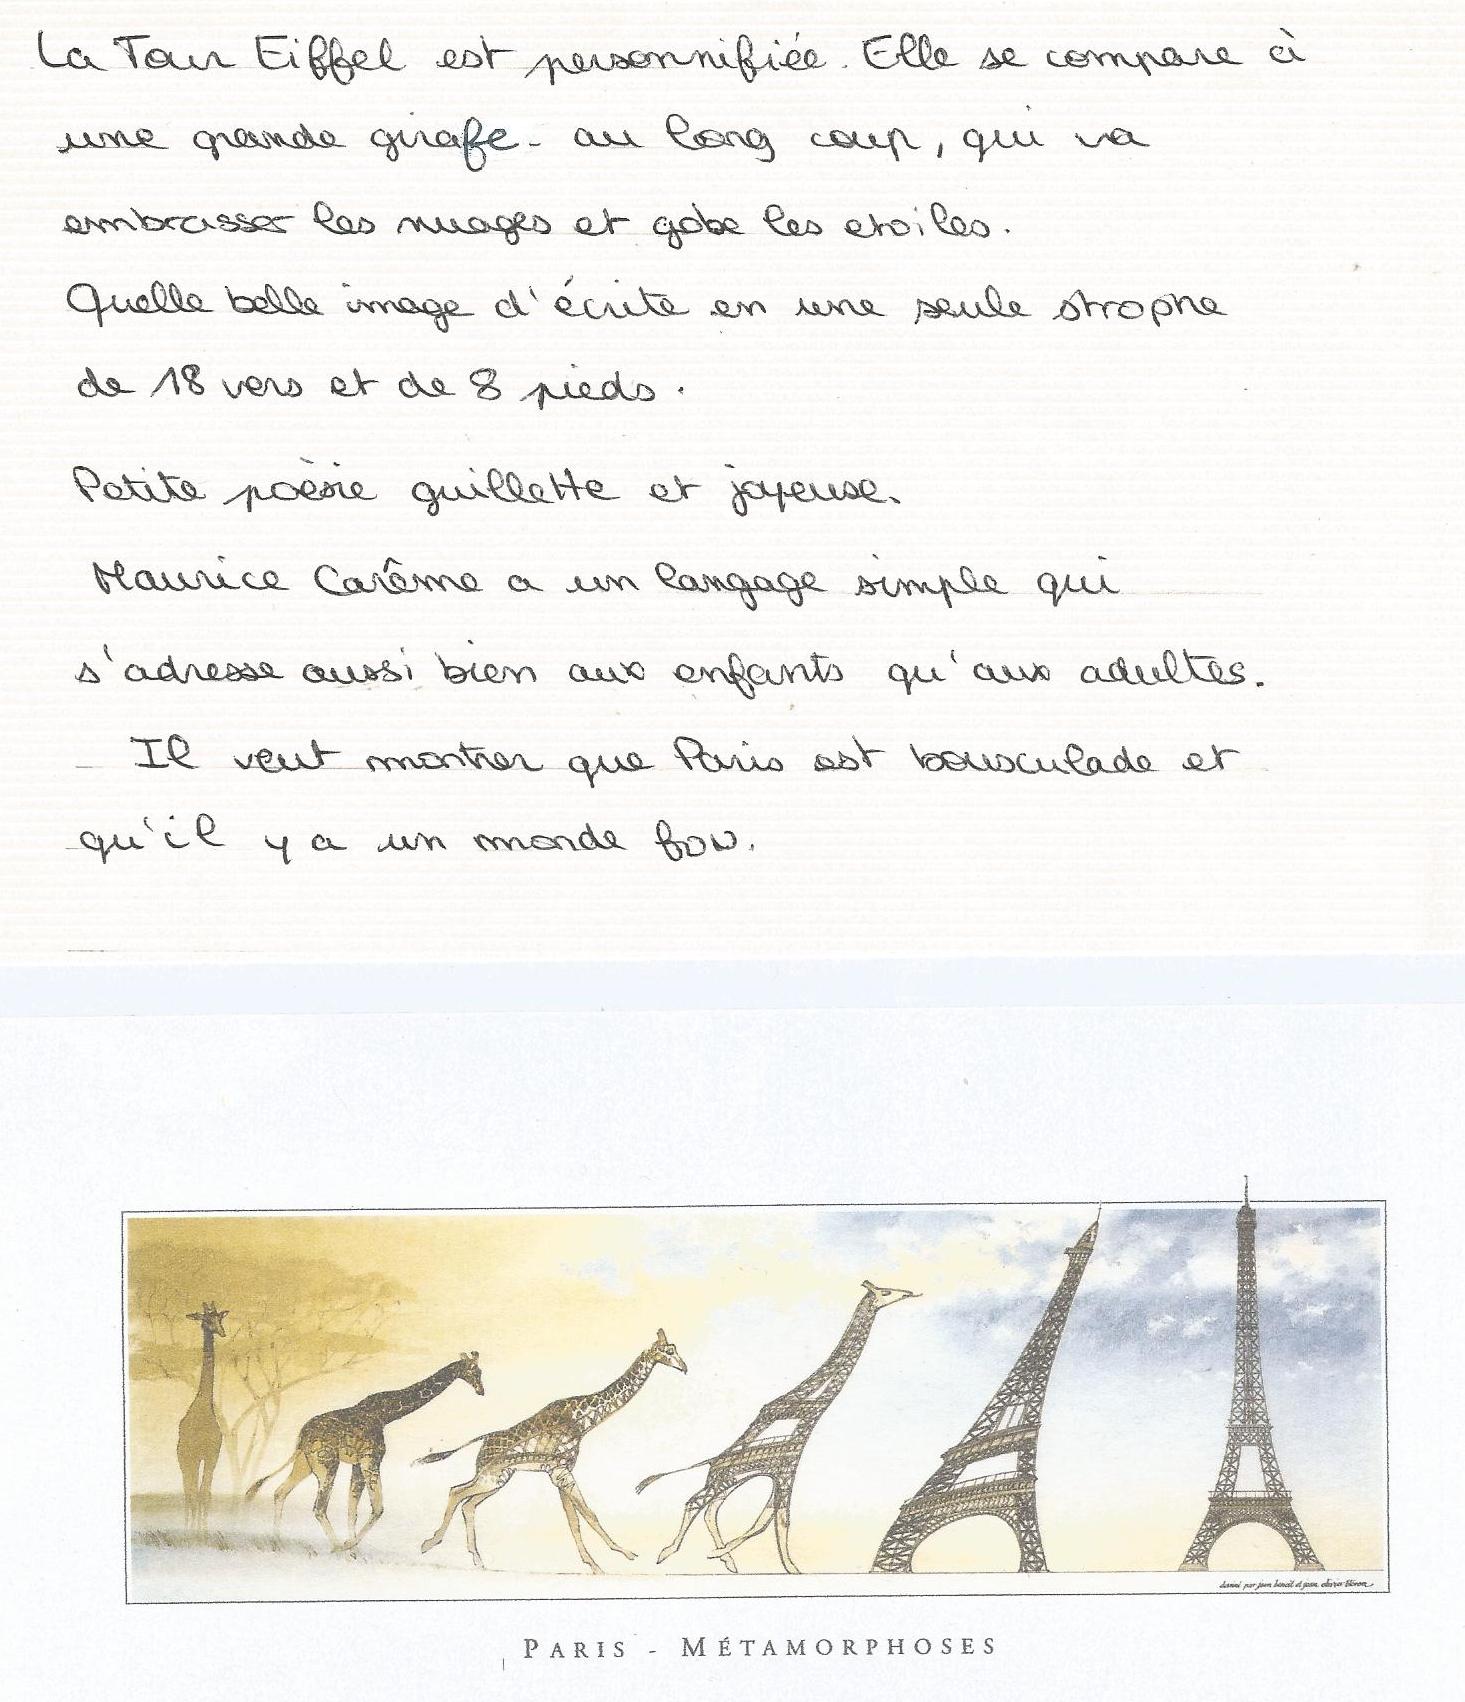 La Tour Eiffel est personnifiée. Elle se compare à
une grande girafe - au long coup, qui va
embrasser les nuages et gobe les etoiles.
Quelle belle image d'écrite en une seule strophe
de 18 vers et de 8 pieds.
Petite poèsie guillette et joyeuse.
Maurice Carême a un langage simple qui
s'adresse aussi bien aux enfants qu'aux adultes.
Il veut montrer que Paris est bousculade et
qu'il y a un monde fou.
dessiné par jean benoit et jean olivier Héron
PARIS - MÉTAMORPHOSES